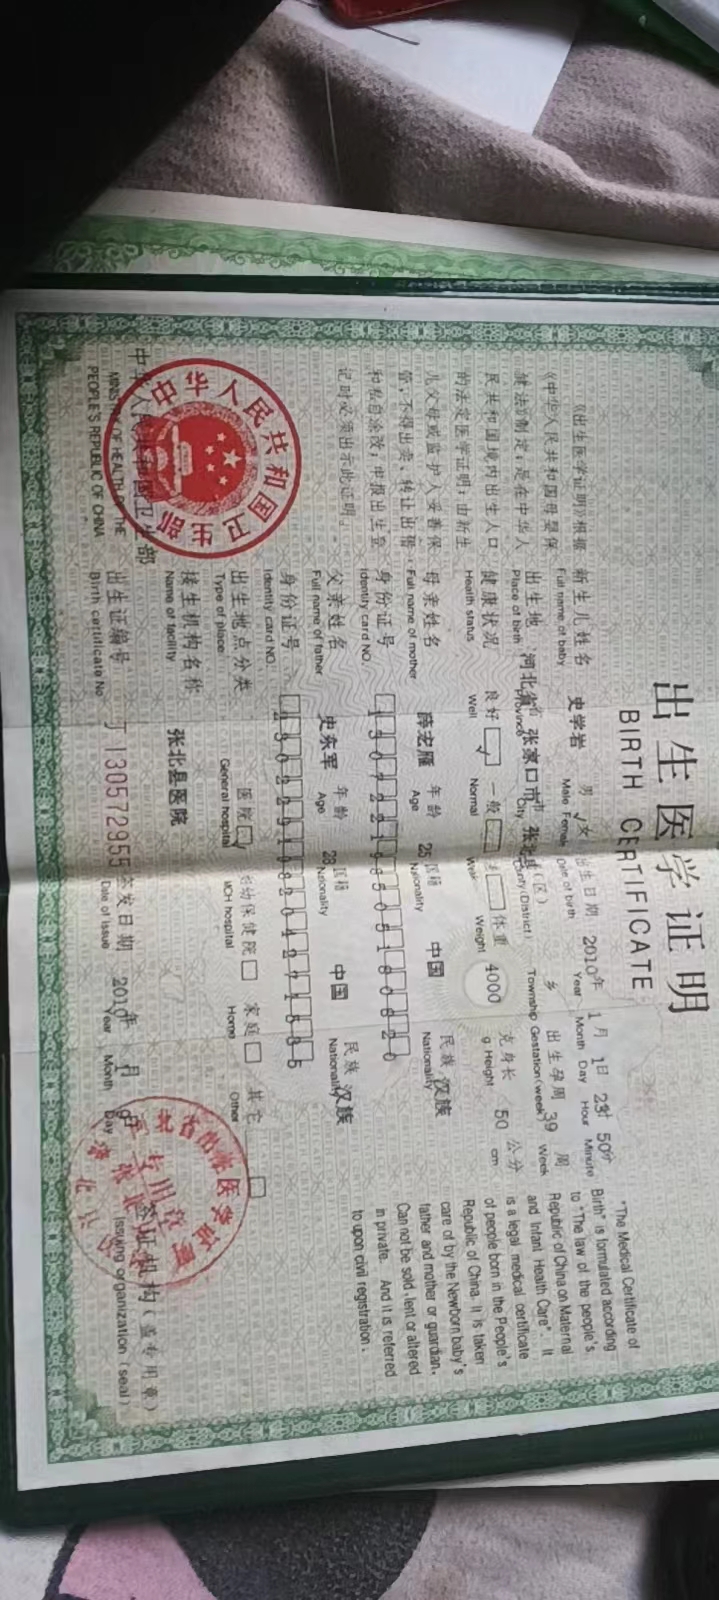 出生医学证明
BIRTH CERTIFICATE
《出生医学证明》根据
《中华人民共和国母婴保
健法》制定,是在中华人
民共和国境内出生人口
的法定医学证明;由新生
儿父母或监护人妥善保
管,不得出卖、转让出借
和私自涂改;申报出生登
记时必须出示此证明。
新生儿姓名 史学岩 男 √ 女 出生日期 2010年 1月 1日 23时 50分
Full name of baby Male Female Date of birth Year Month Day Hour Minute
出生地 河北省 张家口市 张北县(区) 乡 出生孕周 39 周
Place of birth Province City County(District) Township Gestation(week) Week
健康状况 良好 √ 一般 体重 4000 克 身长 50 公分
Health status Well Normal Weak Weight g Height cm
母亲姓名 薛宏雁 年龄 25 国籍 中国 民族 汉族
Full name of mother Age Nationality Nationality
身份证号
Identity card NO.
父亲姓名 史东军 年龄 28 国籍 中国 民族 汉族
Full name of father Age Nationality Nationality
身份证号
Identity card NO.
出生地点分类 医院 √ 妇幼保健院 家庭 其它
Type of place General hospital MCH hospital Home Other
接生机构名称 张北县医院
Name of facility
出生证编号 J130572955 签发日期 2010年 1月 日 签证机构(盖专用章)
Birth certificate No Date of issue Year Month Day Issuing organization (seal)
"The Medical Certificate of
Birth" is formulated according
to "The law of the people's
Republic of China on Maternal
and Infant Health Care". It
is a legal medical certificate
of people born in the People's
Republic of China. It is taken
care of by the Newborn baby's
father and mother or guardian.
Can not be sold, lent or altered
in private. And it is referred
to upon civil registration.
中华人民共和国卫生部
MINISTRY OF HEALTH OF THE
PEOPLE'S REPUBLIC OF CHINA
中华人民共和国卫生部